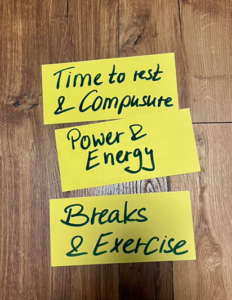 Time to rest
& Compusure
Power &
Energy
Breaks
& Exercise